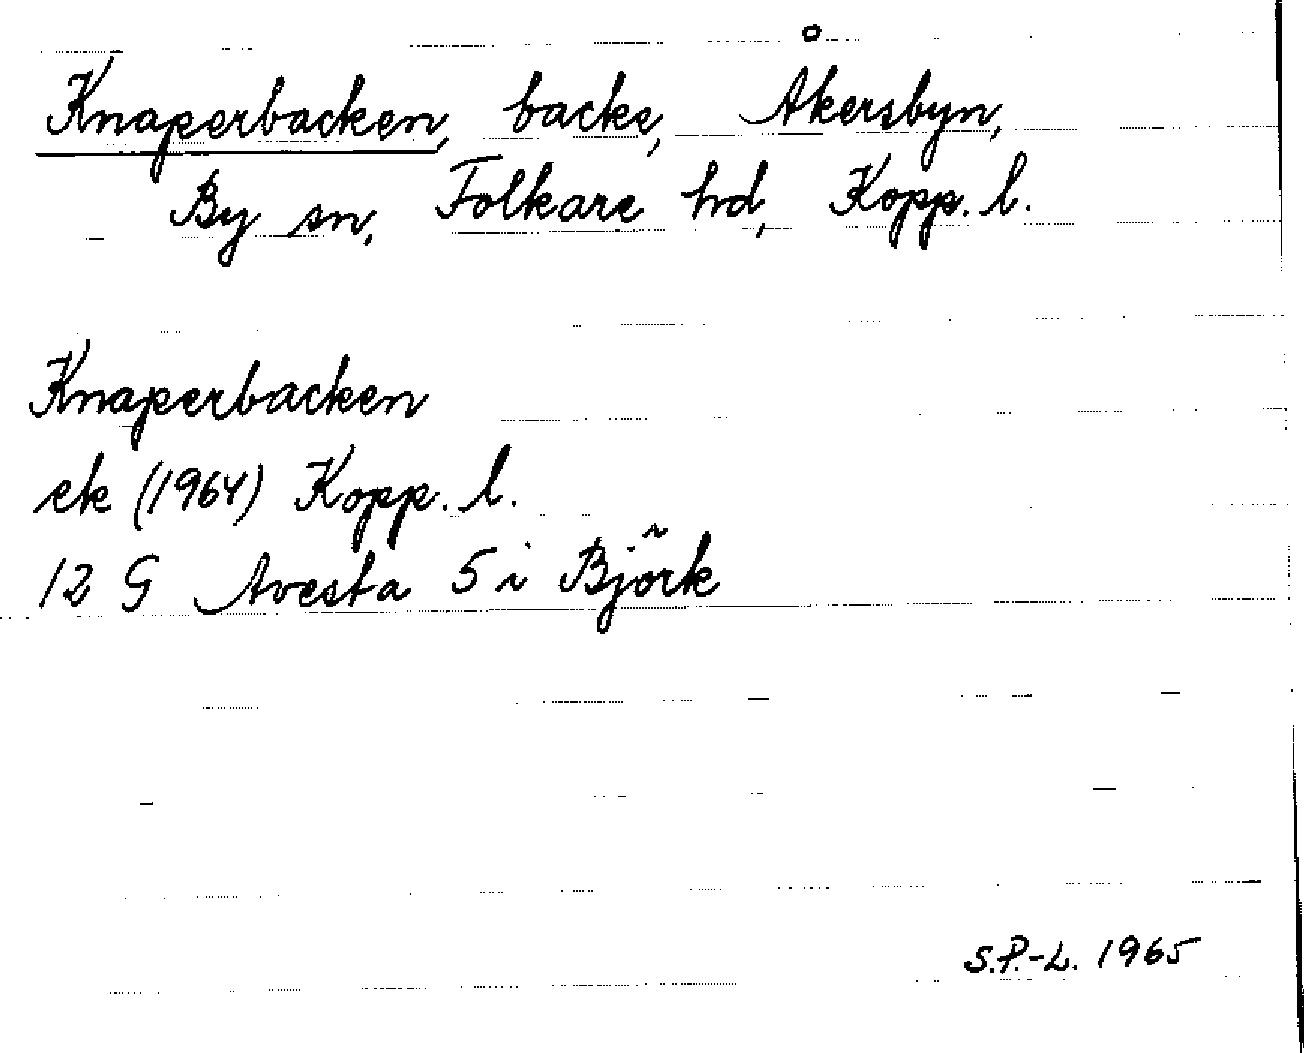 Knaperbacken, backe, Åkersbyn,
By sn, Folkare hd, Kopp. l.
Knaperbacken
ek (1964) Kopp. l.
12 G Avesta 5 i Björk
S.P.-L. 1965